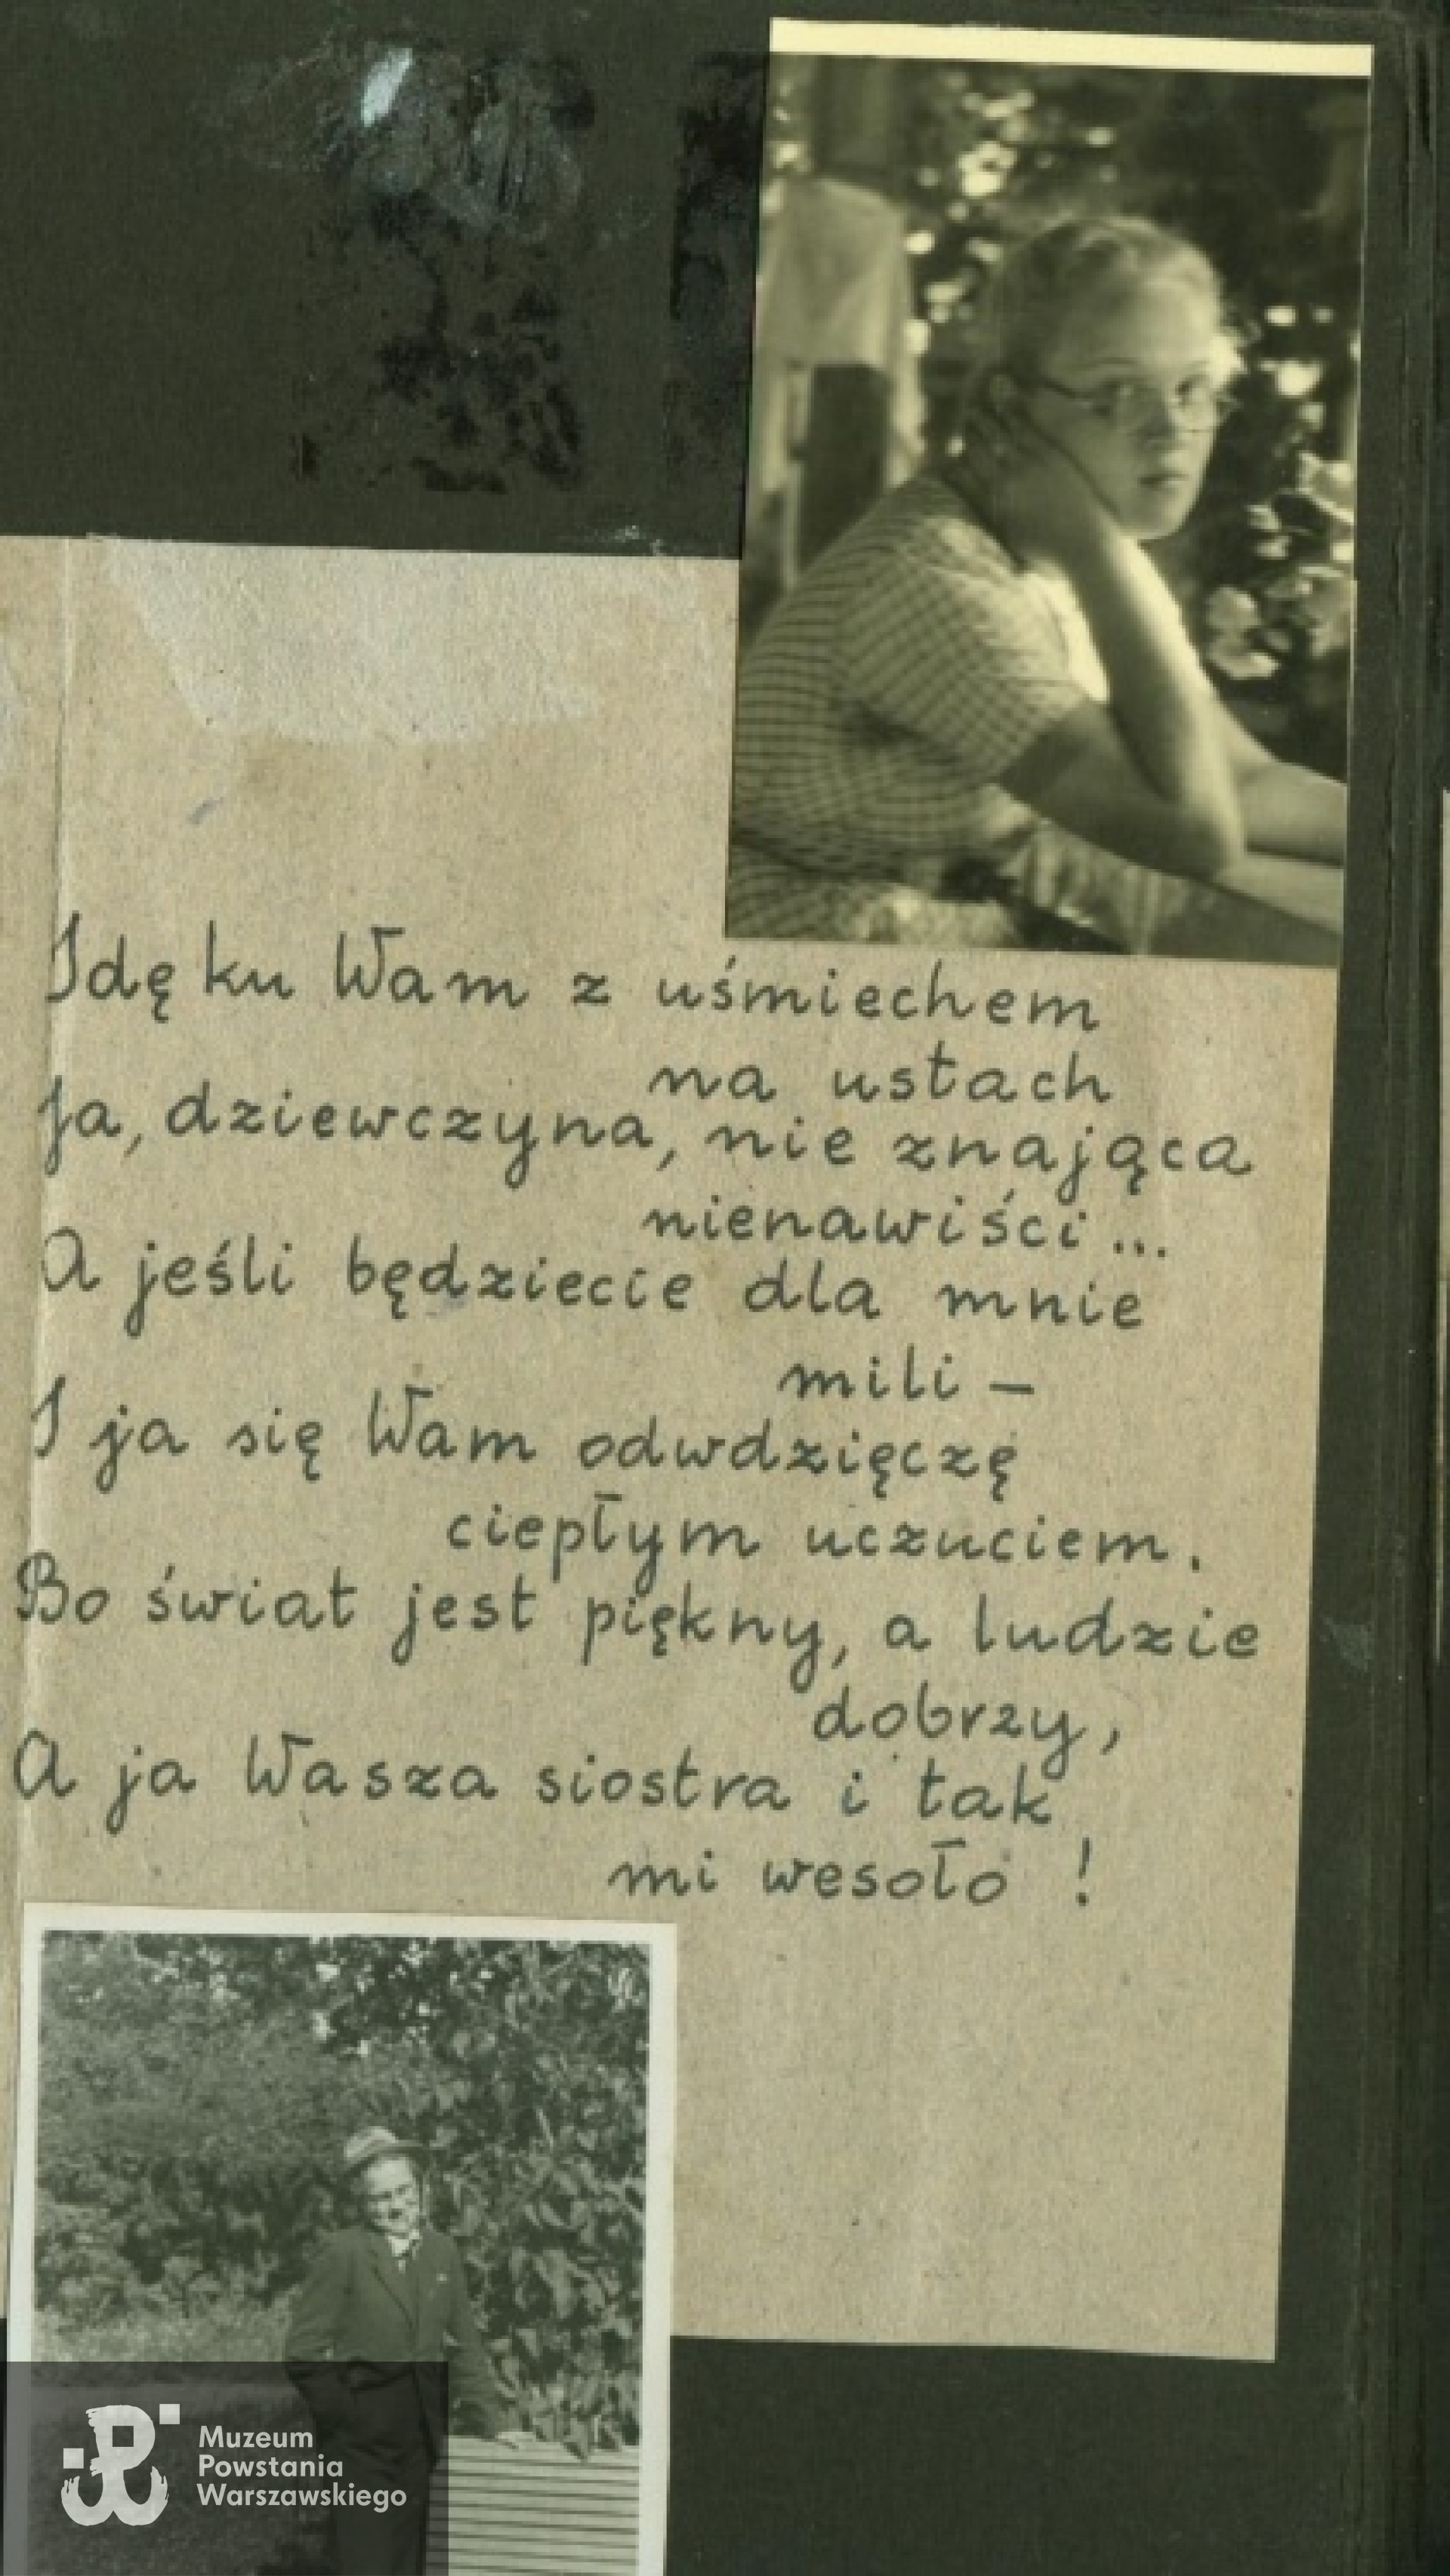 Idę ku Wam z uśmiechem
na ustach
Ja, dziewczyna, nie znająca
nienawiści...
A jeśli będziecie dla mnie
mili –
I ja się Wam odwdzięczę
ciepłym uczuciem.
Bo świat jest piękny, a ludzie
dobrzy,
A ja Wasza siostra i tak
mi wesoło !
Muzeum
Powstania
Warszawskiego